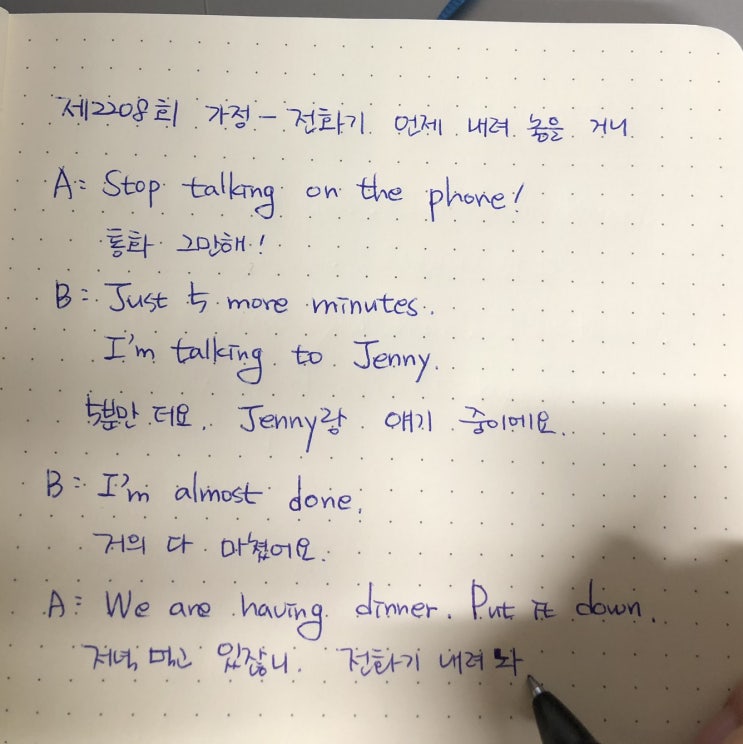 제2208회 가정 - 전화기 언제 내려 놓을 거니
A: Stop talking on the phone!
통화 그만해!
B: Just 5 more minutes.
I'm talking to Jenny.
5분만 더요. Jenny랑 얘기 중이에요.
B: I'm almost done.
거의 다 마쳤어요.
A: We are having dinner. Put it down.
저녁 먹고 있잖니. 전화기 내려 놔